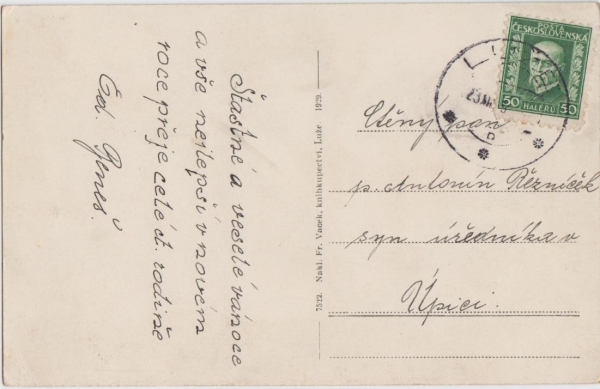 Šťastné a veselé vánoce
a vše nejlepší v novém
roce přeje celé ct. rodině
Ed. Beneš.
7522. Nakl. Fr. Vacek, knihkupectví, Luže 1929.
POŠTA
ČESKOSLOVENSKÁ
50 HALÉŘŮ 50
Ctěný pan
p. Antonín Řezníček
syn úředníka v
Úpici.